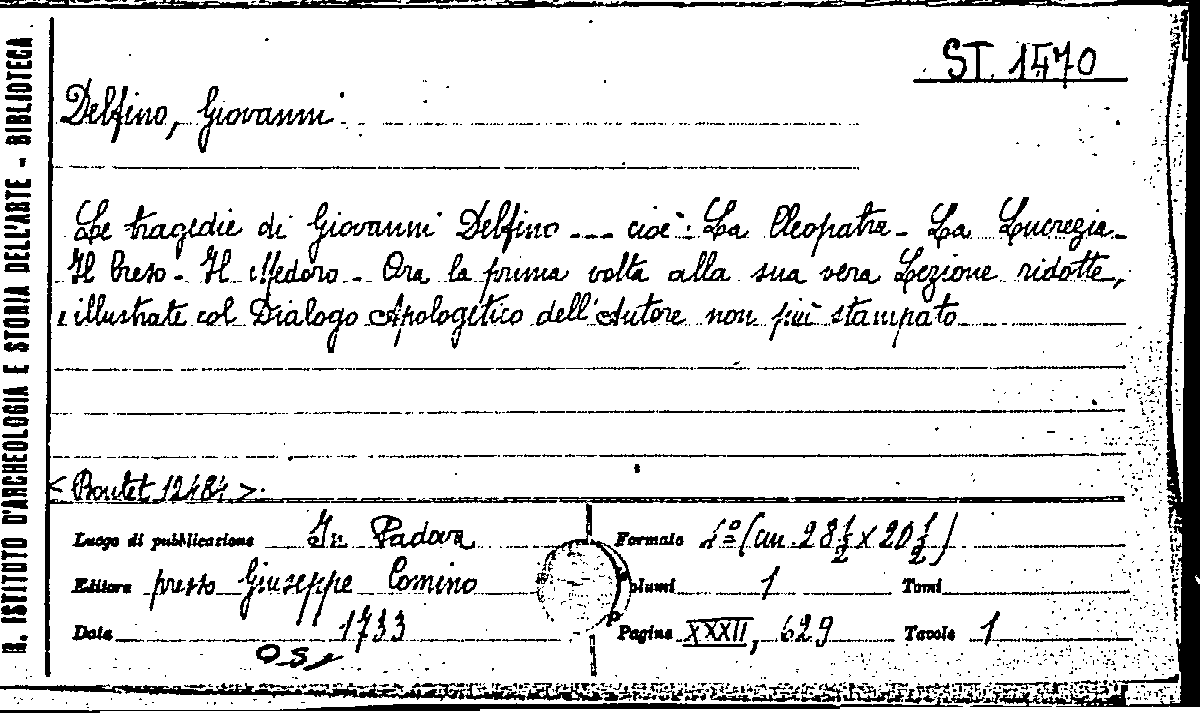 R. ISTITUTO D'ARCHEOLOGIA E STORIA DELL'ARTE - BIBLIOTECA
ST. 1470
Delfino, Giovanni
Le tragedie di Giovanni Delfino --- cioè: La Cleopatra - La Lucrezia -
Il Creso - Il Medoro - Ora la prima volta alla sua vera Lezione ridotte,
e illustrate col Dialogo Apologetico dell'Autore non più stampato
< Boutet 12484 >.
Luogo di pubblicazione In Padova
Formato 4º (cm. 28 1/2 x 20 1/2)
Editore presso Giuseppe Comino
Volumi 1 Tomi
Data 1733
Pagine XXXII, 629 Tavole 1